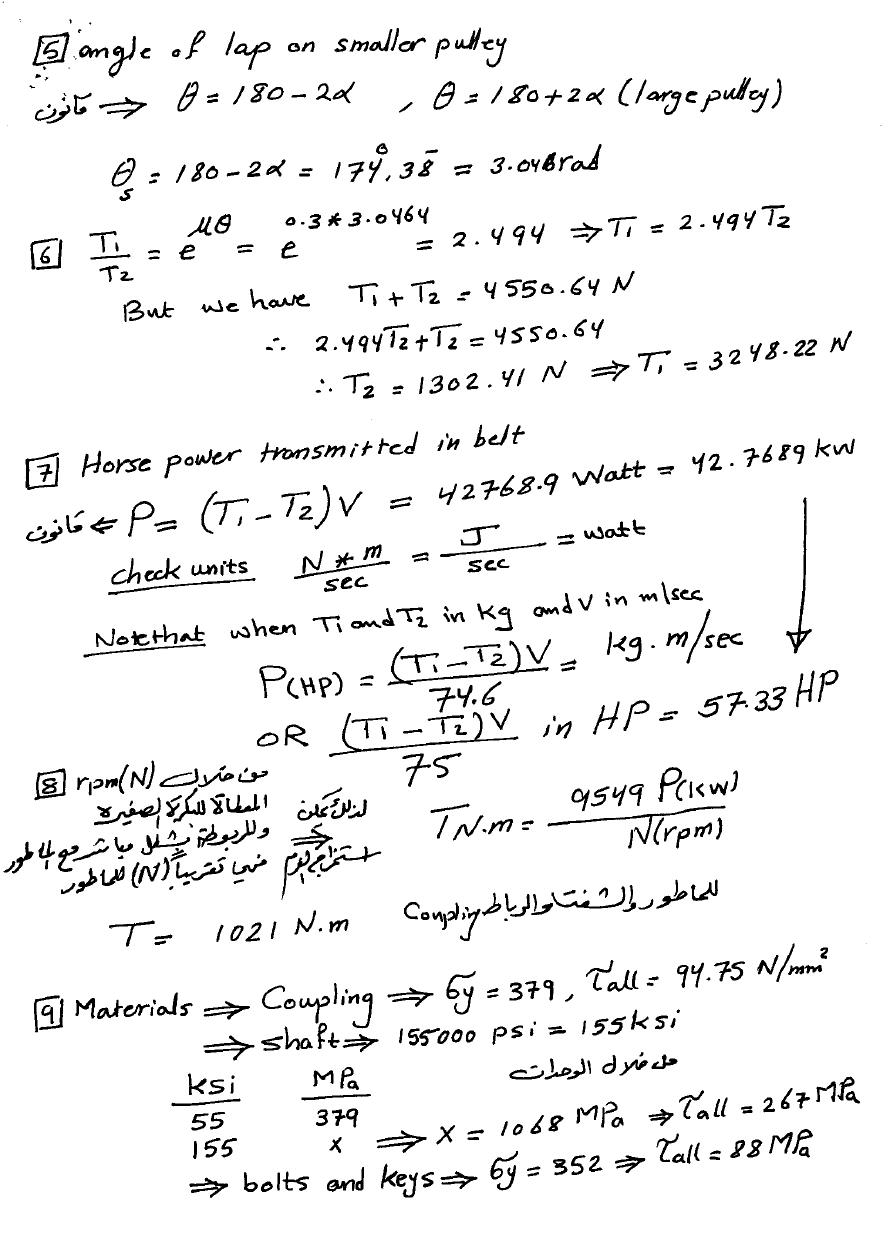 [5] angle of lap on smaller pulley
قانون ⇒ θ = 180 - 2α , θ = 180 + 2α (large pulley)
θs = 180 - 2α = 174°,38̄ = 3.046 rad
[6] T1/T2 = e^μθ = e^0.3*3.0464 = 2.494 ⇒ T1 = 2.494 T2
But we have T1 + T2 = 4550.64 N
∴ 2.494T2 + T2 = 4550.64
∴ T2 = 1302.41 N ⇒ T1 = 3248.22 N
[7] Horse power transmitted in belt
قانون ⇐ P = (T1 - T2) V = 42768.9 Watt = 42.7689 kw
check units N*m/sec = J/sec = watt
Note that when T1 and T2 in kg and V in m/sec
P(HP) = (T1 - T2) V / 74.6 = kg.m/sec
OR (T1 - T2) V / 75 in HP = 57.33 HP
[8] من خلال rpm(N)
المعطاة للبكرة الصغيرة لذلك يمكن
وللربوطة بشكل مباشر مع الماطور ⇒ TN.m = 9549 P(kw) / N(rpm)
فهي تقريباً (N) للماطور استخراج العزم
T = 1021 N.m للماطور والشفت والرباط Coupling
[9] Materials ⇒ Coupling ⇒ σy = 379, τall = 94.75 N/mm²
⇒ shaft ⇒ 155000 psi = 155 ksi
ksi MPa من خلال الوحدات
55 379
155 x ⇒ x = 1068 MPa ⇒ τall = 267 MPa
⇒ bolts and keys ⇒ σy = 352 ⇒ τall = 88 MPa